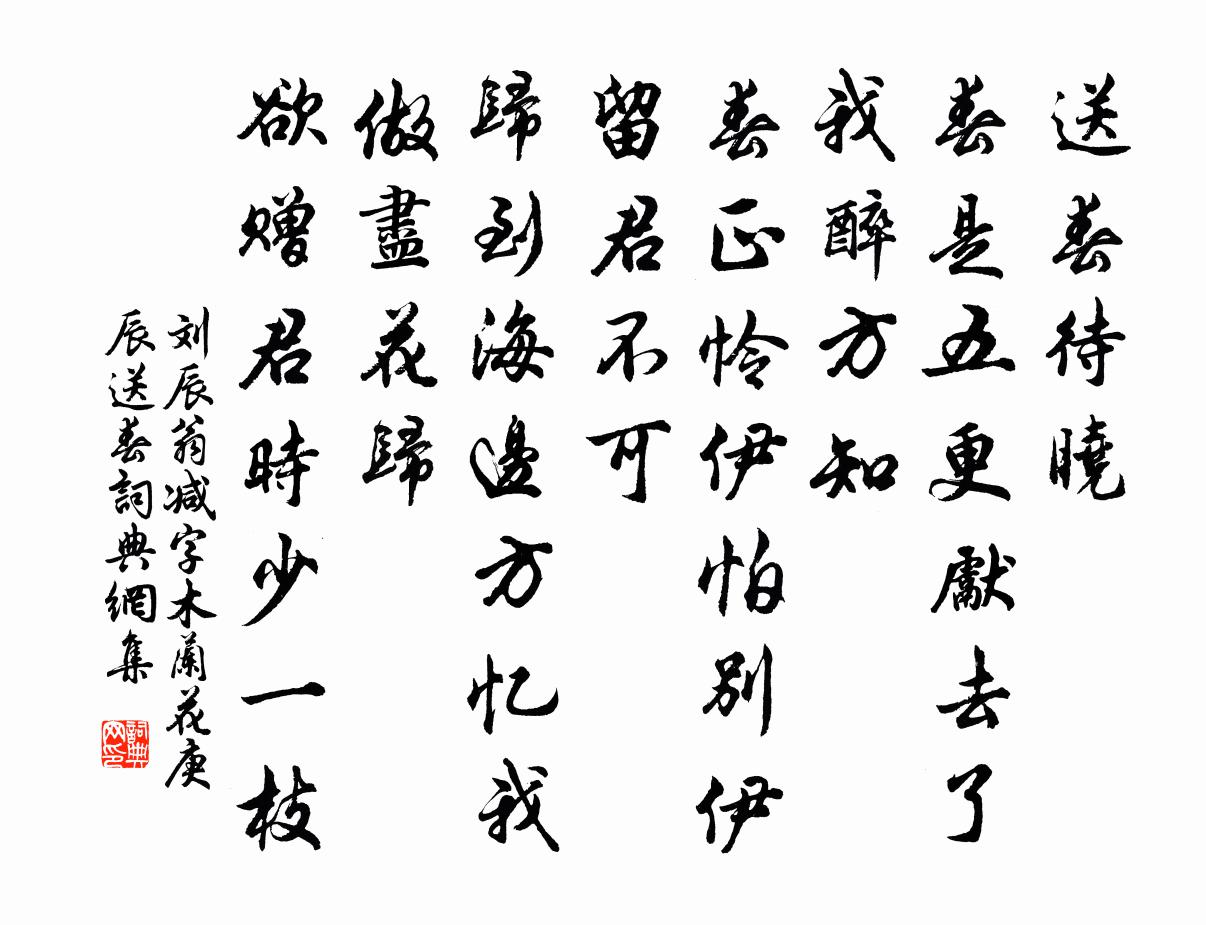 送春待曉
春是五更獻去了
我醉方知
春正怜伊怕別伊
留君不可
歸到海邊方忆我
做盡花歸
欲贈君時少一枝
刘辰翁减字木蘭花庚
辰送春詞典網集
詞典
网印